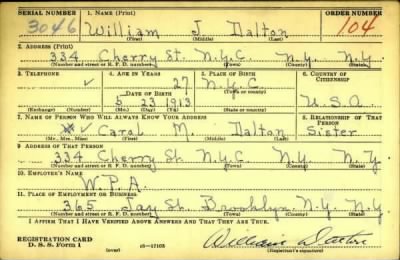 SERIAL NUMBER 1. NAME (Print) ORDER NUMBER
3046 William J. Dalton 104
(First) (Middle) (Last)
2. ADDRESS (Print)
334 Cherry St. N.Y.C. N.Y. N.Y.
(Number and street or R. F. D. number) (Town) (County) (State)
3. TELEPHONE 4. AGE IN YEARS 5. PLACE OF BIRTH 6. COUNTRY OF CITIZENSHIP
27 N.Y.C.
DATE OF BIRTH (Town or county)
5 23 1913 U.S.A.
(Exchange) (Number) (Mo.) (Day) (Yr.) (State or country)
7. NAME OF PERSON WHO WILL ALWAYS KNOW YOUR ADDRESS 8. RELATIONSHIP OF THAT PERSON
Carol M. Dalton Sister
(Mr., Mrs., Miss) (First) (Middle) (Last)
9. ADDRESS OF THAT PERSON
334 Cherry St. N.Y.C. N.Y. N.Y.
(Number and street or R. F. D. number) (Town) (County) (State)
10. EMPLOYER'S NAME
W.P.A.
11. PLACE OF EMPLOYMENT OR BUSINESS
365 Jay St. Brooklyn N.Y. N.Y.
(Number and street or R. F. D. number) (Town) (County) (State)
I AFFIRM THAT I HAVE VERIFIED ABOVE ANSWERS AND THAT THEY ARE TRUE.
REGISTRATION CARD
D. S. S. Form 1 (over) 16—17105 William Dalton
(Registrant's signature)